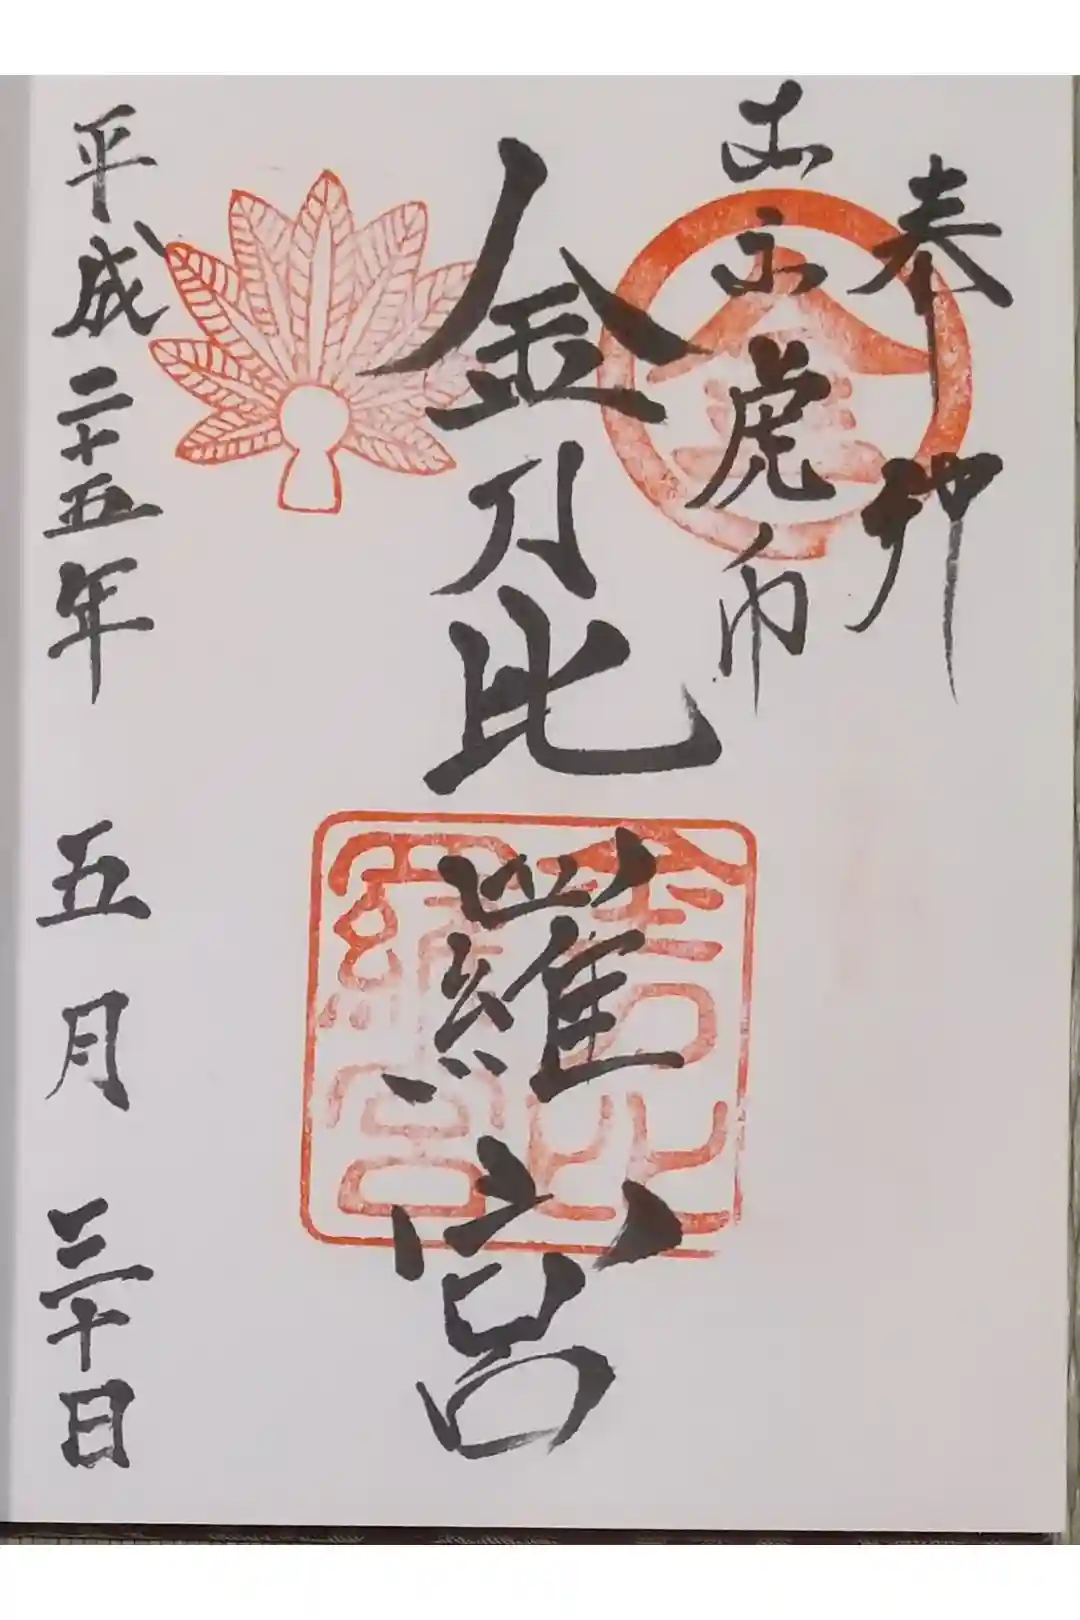 奉拝
東京虎門
金
金刀比羅宮
金刀比羅宮
平成二十五年五月三十日